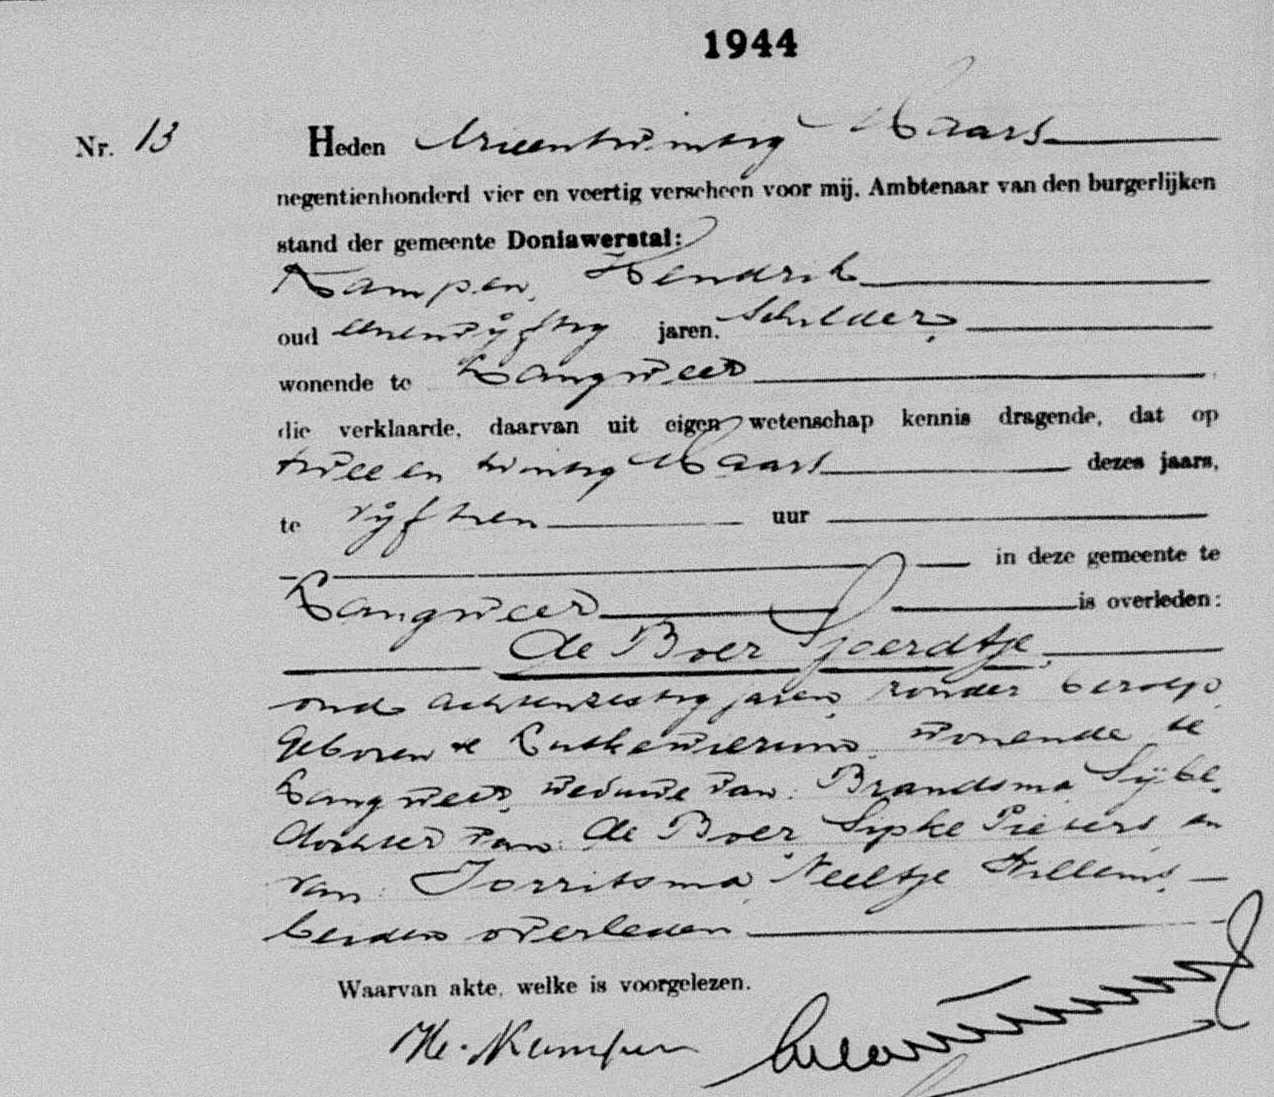 1944
Nr. 13 Heden drieentwintig Maart
negentienhonderd vier en veertig verscheen voor mij, Ambtenaar van den burgerlijken
stand der gemeente Doniawerstal:
Kampen, Hendrik
oud eenenvijftig jaren, schilder,
wonende te Langweer
die verklaarde, daarvan uit eigen wetenschap kennis dragende, dat op
twee en twintig Maart dezes jaars,
te vijftien uur
in deze gemeente te
Langweer is overleden:
de Boer Sjoerdtje,
oud achtenzestig jaren, zonder beroep,
geboren te wonende te
Langweer, weduwe van: Brandsma Sijbe,
dochter van: de Boer, Sipke Pieters, en
van: Jorritsma, Neeltje Willems,
beiden overleden
Waarvan akte, welke is voorgelezen.
He. Kampen